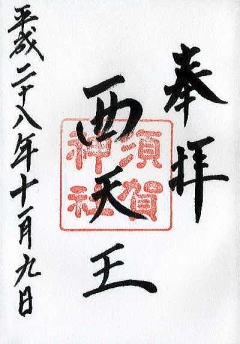 奉拝
西天王
須賀神社
平成二十八年十一月九日